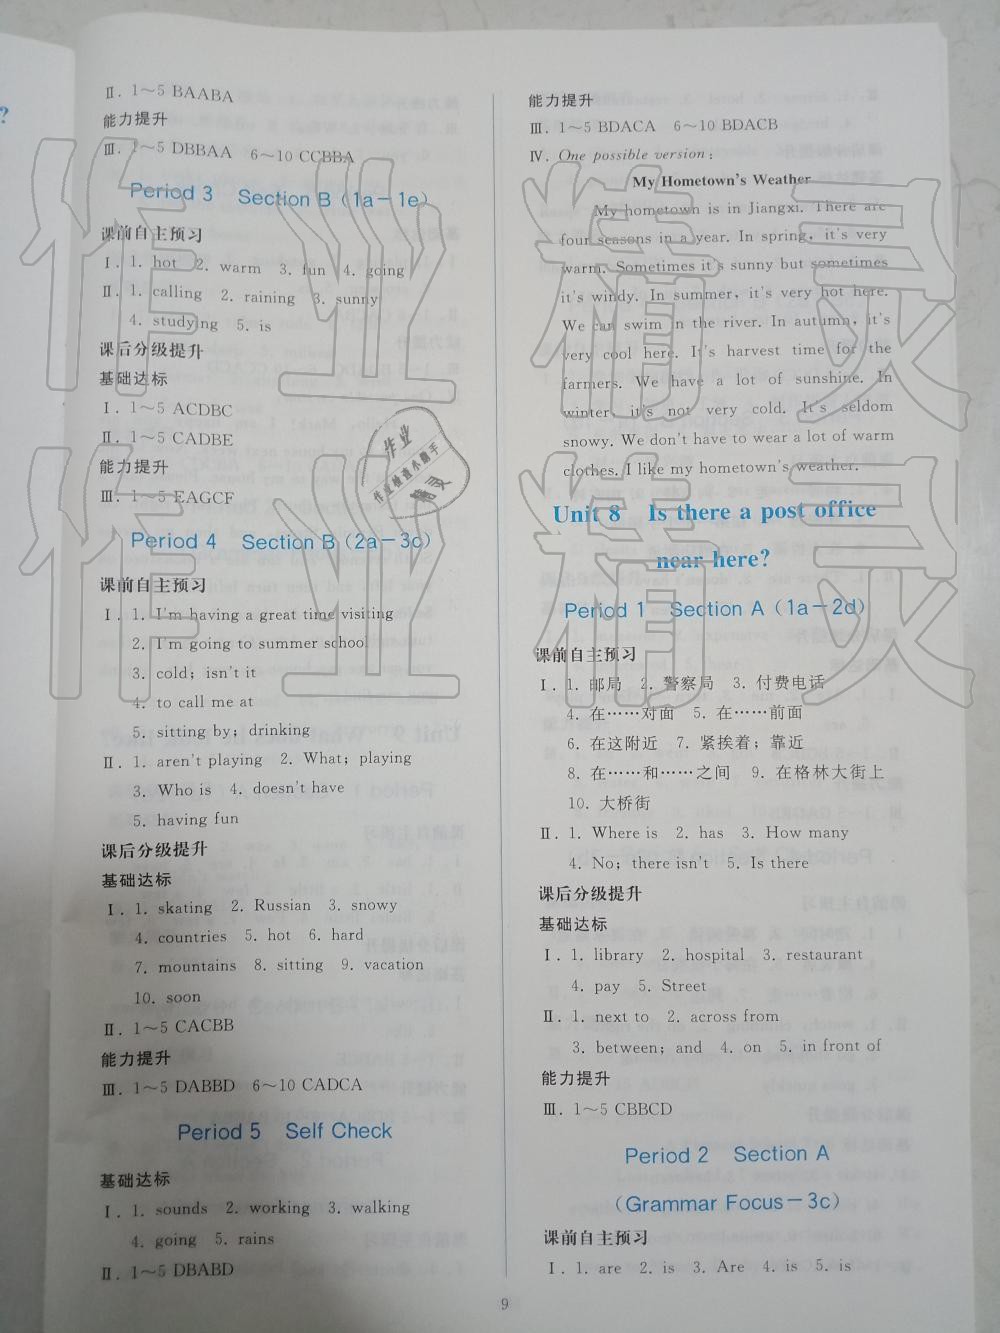 Ⅱ. 1~5 BAABA
能力提升
Ⅲ. 1~5 DBBAA 6~10 CCBBA
Period 3 Section B(1a-1e)
课前自主预习
Ⅰ. 1. hot 2. warm 3. fun 4. going
Ⅱ. 1. calling 2. raining 3. sunny
4. studying 5. is
课后分级提升
基础达标
Ⅰ. 1~5 ACDBC
Ⅱ. 1~5 CADBE
能力提升
Ⅲ. 1~5 EAGCF
Period 4 Section B(2a-3c)
课前自主预习
Ⅰ. 1. I'm having a great time visiting
2. I'm going to summer school
3. cold; isn't it
4. to call me at
5. sitting by; drinking
Ⅱ. 1. aren't playing 2. What; playing
3. Who is 4. doesn't have
5. having fun
课后分级提升
基础达标
Ⅰ. 1. skating 2. Russian 3. snowy
4. countries 5. hot 6. hard
7. mountains 8. sitting 9. vacation
10. soon
Ⅱ. 1~5 CACBB
能力提升
Ⅲ. 1~5 DABBD 6~10 CADCA
Period 5 Self Check
基础达标
Ⅰ. 1. sounds 2. working 3. walking
4. going 5. rains
Ⅱ. 1~5 DBABD
能力提升
Ⅲ. 1~5 BDACA 6~10 BDACB
Ⅳ. One possible version:
My Hometown's Weather
My hometown is in Jiangxi. There are
four seasons in a year. In spring, it's very
warm. Sometimes it's sunny but sometimes
it's windy. In summer, it's very hot here.
We can swim in the river. In autumn, it's
very cool here. It's harvest time for the
farmers. We have a lot of sunshine. In
winter, it's not very cold. It's seldom
snowy. We don't have to wear a lot of warm
clothes. I like my hometown's weather.
Unit 8 Is there a post office
near here?
Period 1 Section A(1a-2d)
课前自主预习
Ⅰ. 1. 邮局 2. 警察局 3. 付费电话
4. 在……对面 5. 在……前面
6. 在这附近 7. 紧挨着；靠近
8. 在……和……之间 9. 在格林大街上
10. 大桥街
Ⅱ. 1. Where is 2. has 3. How many
4. No; there isn't 5. Is there
课后分级提升
基础达标
Ⅰ. 1. library 2. hospital 3. restaurant
4. pay 5. Street
Ⅱ. 1. next to 2. across from
3. between; and 4. on 5. in front of
能力提升
Ⅲ. 1~5 CBBCD
Period 2 Section A
(Grammar Focus-3c)
课前自主预习
Ⅰ. 1. are 2. is 3. Are 4. is 5. is
9
作业精灵
作业精灵
作业
作业检查小助手
精灵